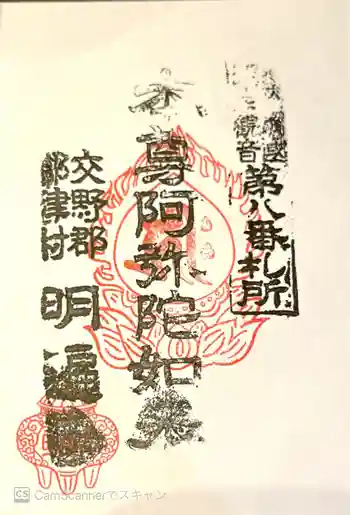 観音
第八番札所
本尊阿弥陀如来
交野郡
郡津村
明遍寺
CS CamScannerでスキャン